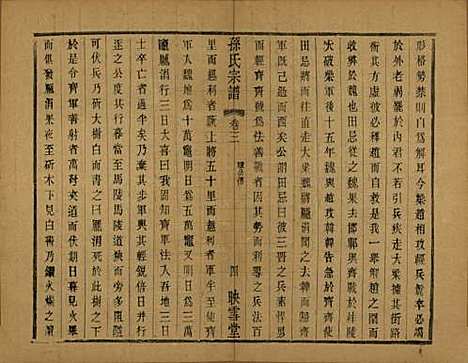 形格勢禁則自爲解耳今梁趙相攻輕兵銳卒必竭
於外老弱罷於內君不若引兵疾走大梁據其街路
衝其方虛彼必釋趙而自救是我一舉解趙之圍而
收弊於魏也田忌從之魏果去邯鄲與齊戰於桂陵
大破梁軍後十五年魏與趙攻韓韓告急於齊齊使
田忌將而往直走大梁魏將龐涓聞之去韓而歸齊
軍既已過而西矣孫子謂田忌曰彼三晉之兵素悍勇
而輕齊齊號爲怯善戰者因其勢而利導之兵法百
孫氏宗譜
卷二
四
映雪堂
里而趨利者蹶上將五十里而趨利者軍半至使齊
軍入魏地爲十萬竈明日爲五萬竈又明日爲三萬
竈龐涓行三日大喜曰我固知齊軍怯入吾地三日
士卒亡者過半矣乃棄其步軍與其輕銳倍日并行
逐之孫子度其行暮當至馬陵馬陵道狹而旁多阻隘
可伏兵乃斫大樹白而書之曰龐涓死于此樹之下
於是令齊軍善射者萬弩夾道而伏期曰暮見火舉
而俱發龐涓果夜至斫木下見白書乃鑽火燭之讀